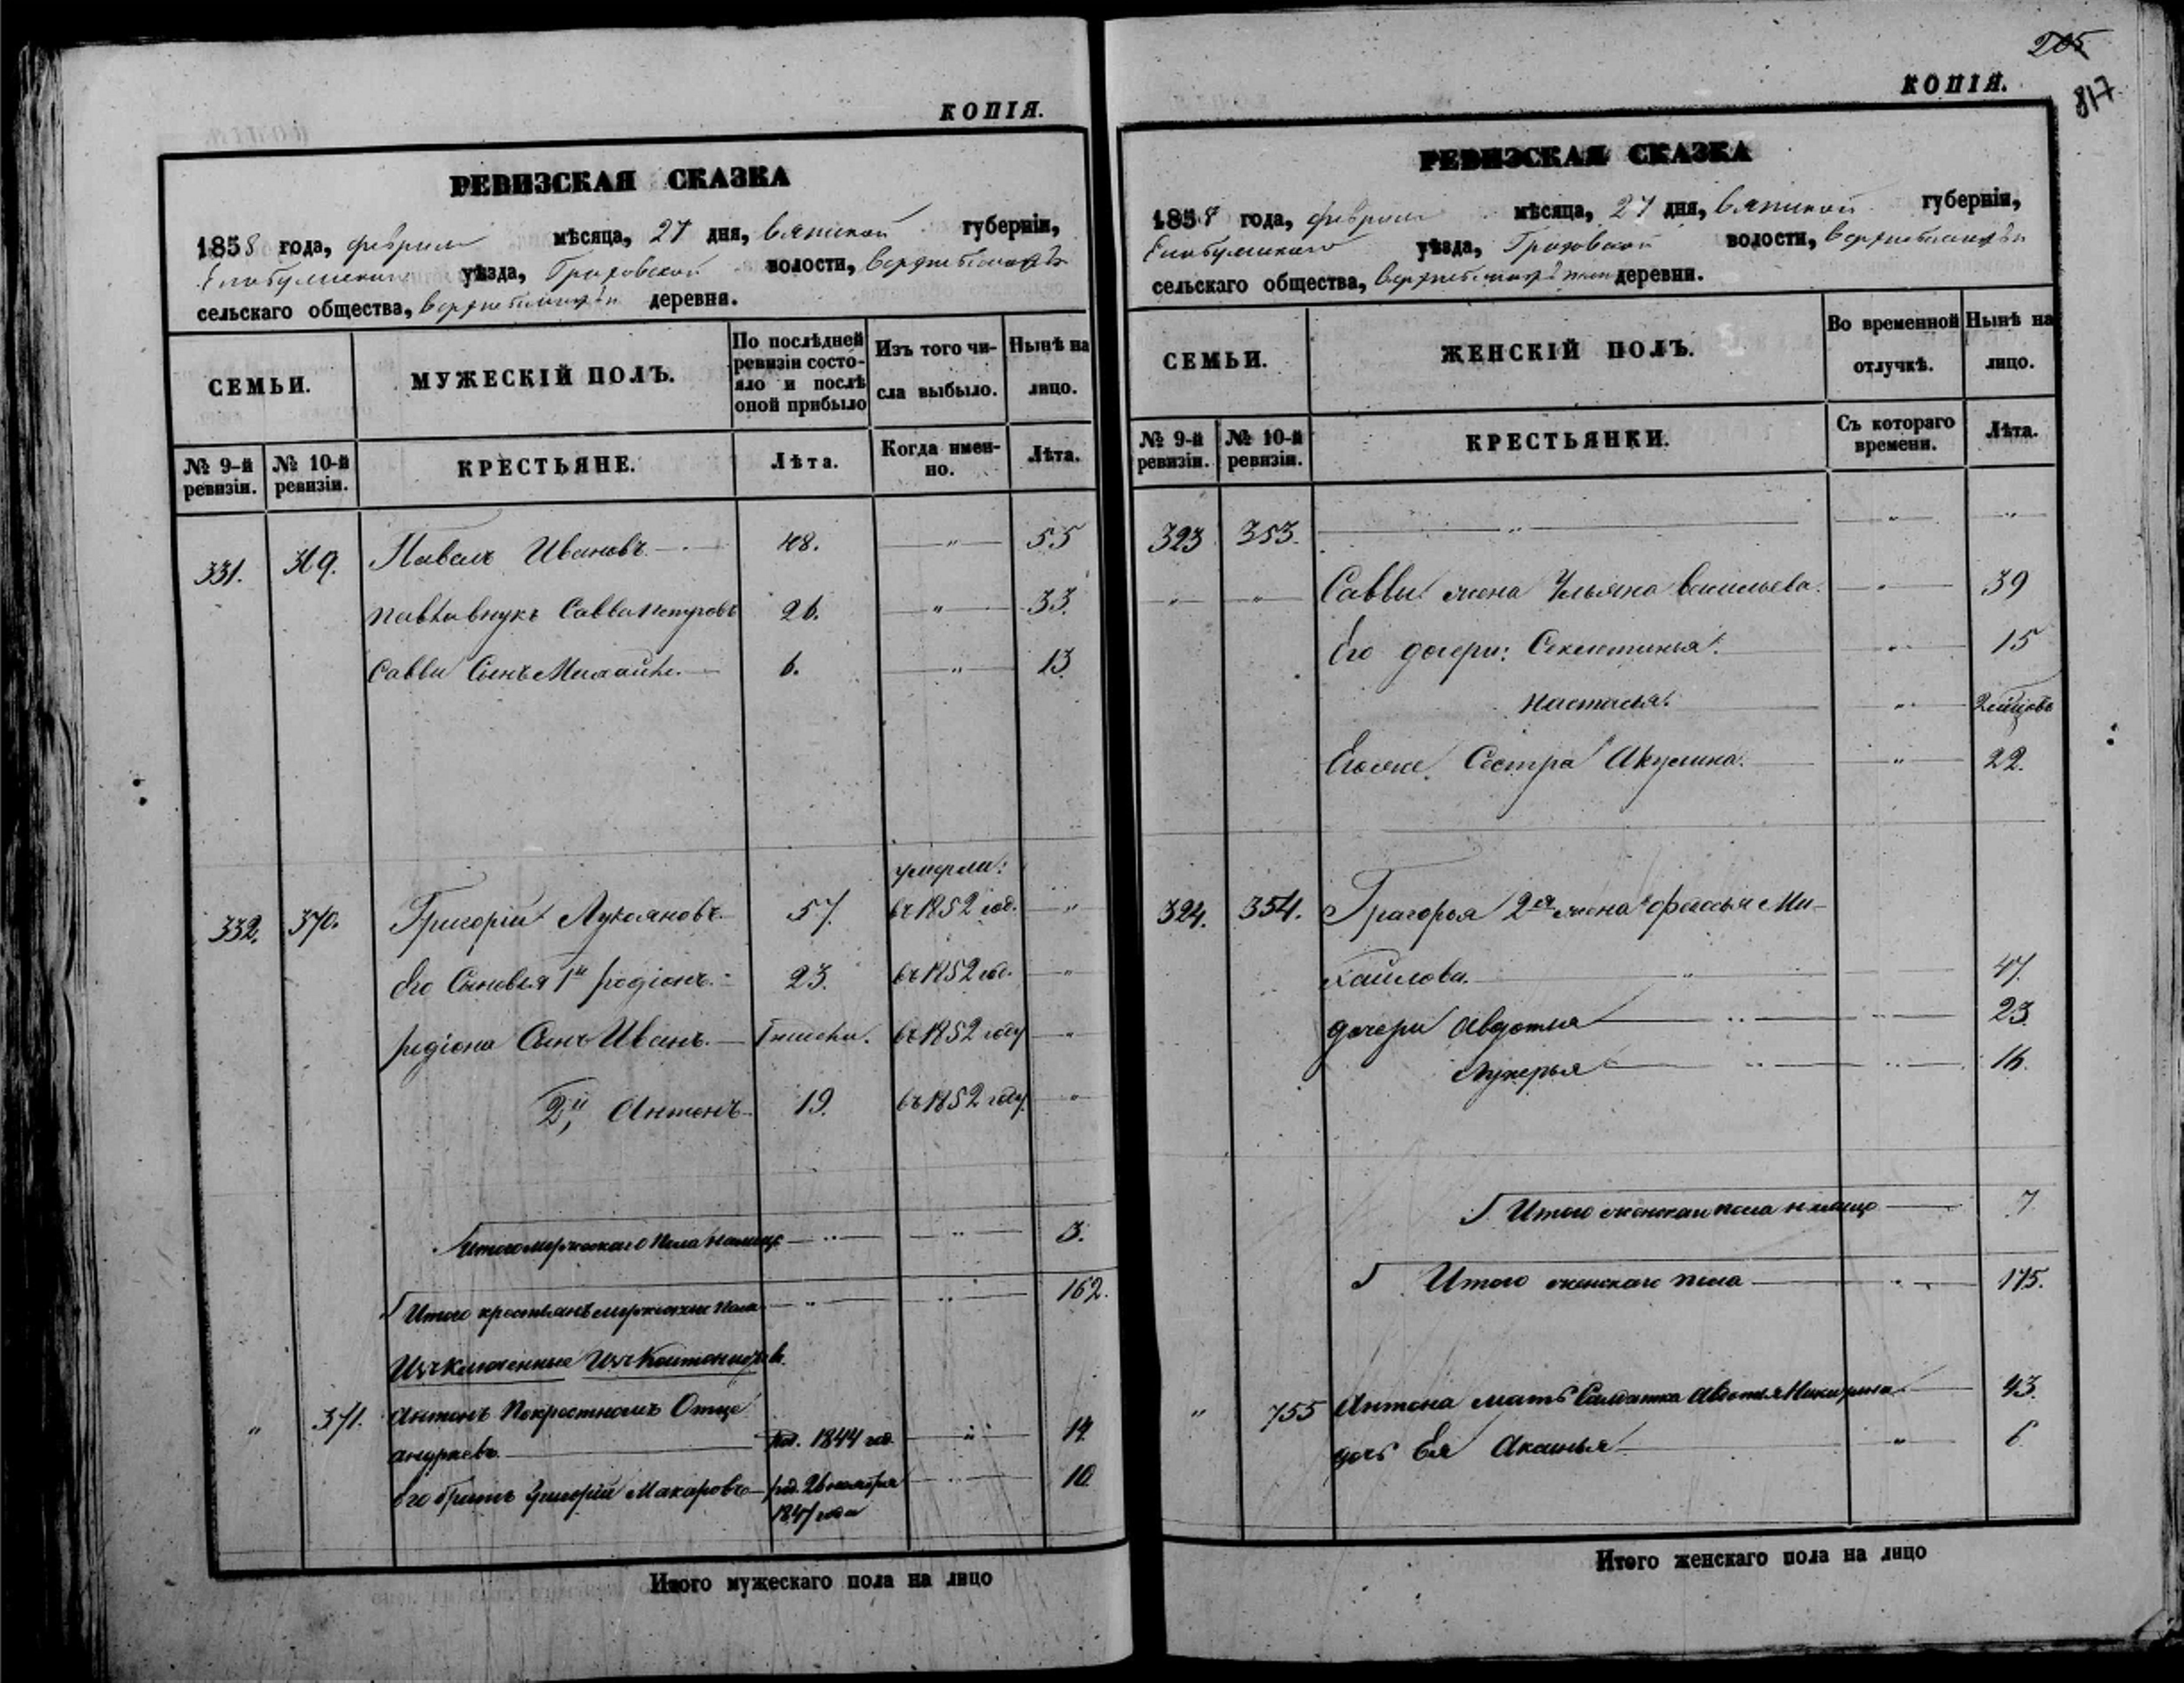 КОПІЯ.
РЕВИЗСКАЯ СКАЗКА
1858 года, февраля мѣсяца, 27 дня, Вятской губерніи,
Елабужскаго уѣзда, Граховской волости,
сельскаго общества, деревня.
СЕМЬИ.
МУЖЕСКІЙ ПОЛЪ.
По послѣдней ревизіи состояло и послѣ оной прибыло
Изъ того числа выбыло.
Нынѣ на лицо.
№ 9-й ревизіи.
№ 10-й ревизіи.
КРЕСТЬЯНЕ.
Лѣта.
Когда имен-
но.
Лѣта.
331. 369. Павелъ Ивановъ 48. " 55
Павла внукъ Савва Петровъ 26. " 33.
Саввы Сынъ Михайло. 6. " 13
умерли:
332. 370. Григорій Лукояновъ 57. въ 1852 год. "
Его Сыновья 1й Родіонъ. 23. въ 1852 год. "
Родіона Сынъ Иванъ. въ 1852 году "
2й, Антонъ 19. въ 1852 году "
Итого мужескаго пола на лицо 3.
Итого крестьянъ мужеска пола " 162.
Изключенные Изъ Кантонистовъ.
" 371. Антонъ По крестномъ Отце
Андреевъ. род. 1844 год. " 14
его братъ Григорій Макаровъ род. 26 ноября 10.
1847 года
Итого мужескаго пола на лицо
205
817
КОПІЯ.
РЕВИЗСКАЯ СКАЗКА
1858 года, февраля мѣсяца, 27 дня, Вятской губерніи,
Елабужскаго уѣзда, Граховской волости,
сельскаго общества, деревни.
СЕМЬИ.
ЖЕНСКІЙ ПОЛЪ.
Во временной отлучкѣ.
Нынѣ на лицо.
№ 9-й ревизіи.
№ 10-й ревизіи.
КРЕСТЬЯНКИ.
Съ котораго времени.
Лѣта.
323 353. " " "
" " Саввы жена Ульяна Васильева. " 39
Его дочери: Секлетинья. " 15
Настасья. " 2 мѣсяцовъ
Его же Сестра Акулина. " 22.
324. 354. Григорья 2я жена Ми-
хайлова. " 47.
дочери Авдотья 23.
Лукерья 16.
Итого женскаго пола на лицо 7
Итого женскаго пола 175.
" 755 Антона мать Салдатка Авдотья Никифорова 43.
дочь Ея Акинья " 6
Итого женскаго пола на лицо